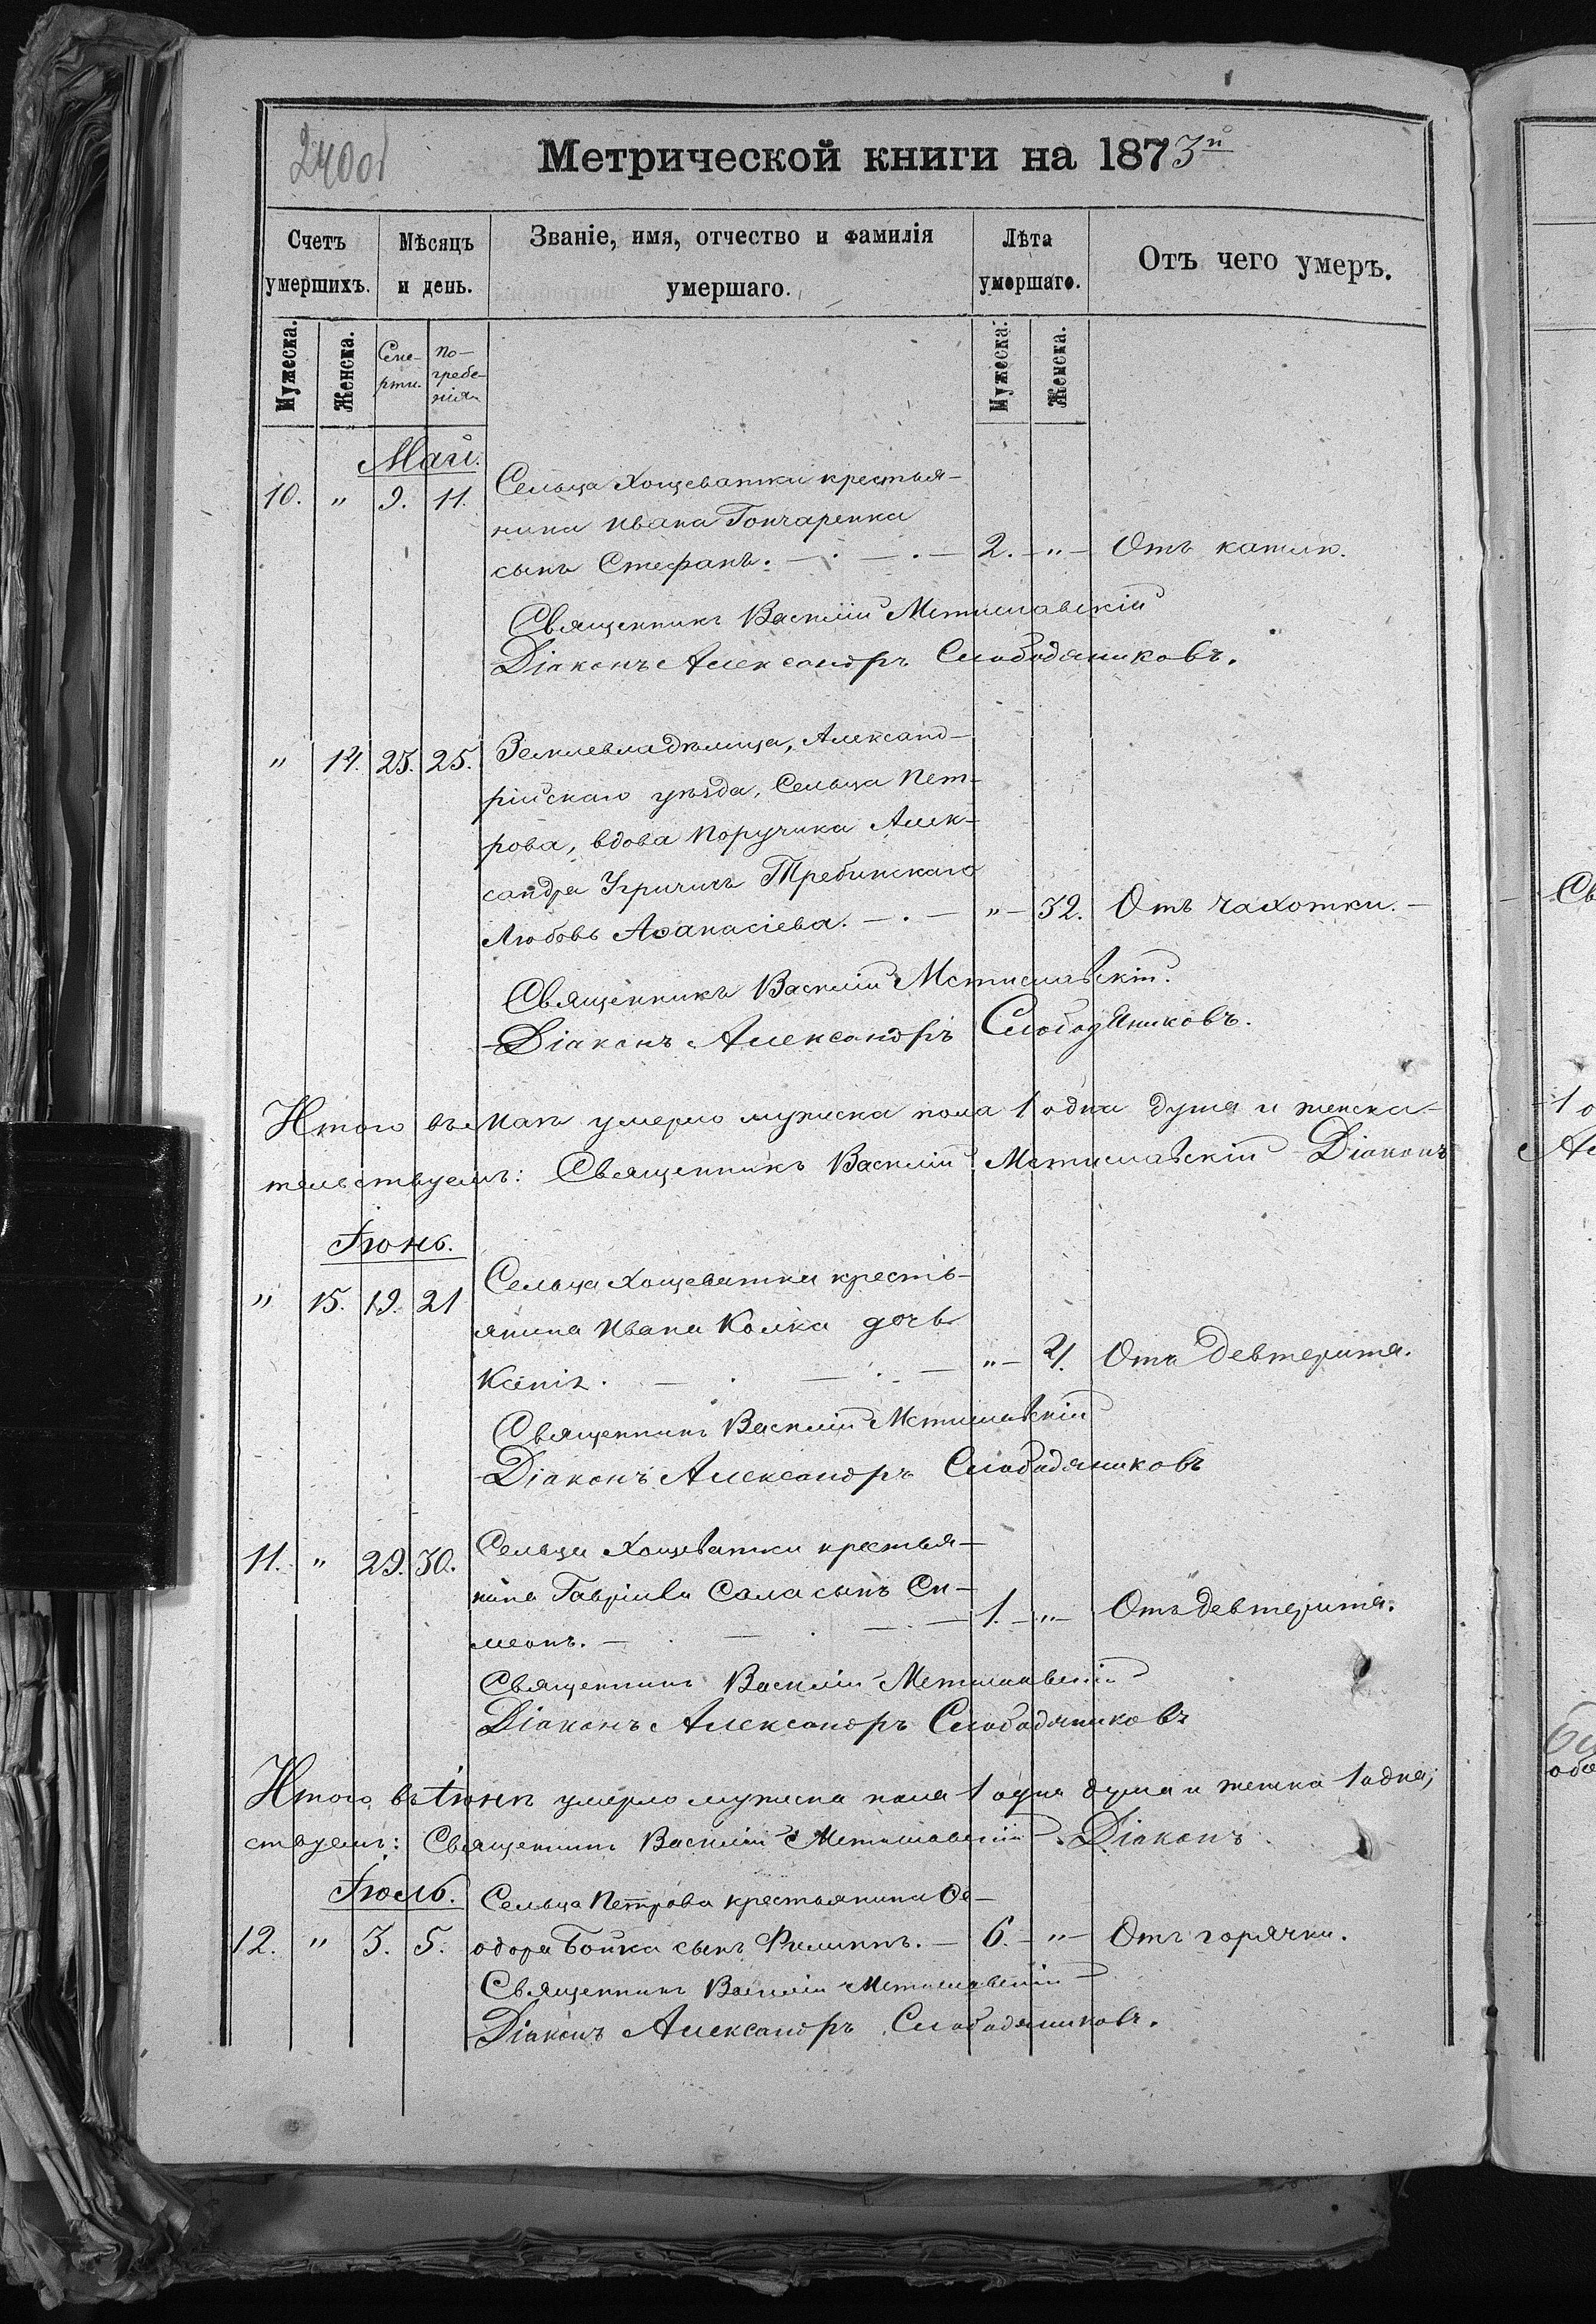 240об
Метрической книги на 1873й
Счетъ умершихъ.
Мѣсяцъ и день.
Званіе, имя, отчество и фамилія умершаго.
Лѣта умершаго.
Отъ чего умеръ.
Мужеска. Женска. Сме-рти. По-гребе-нія
Мужеска. Женска.
Май.
10. " 9. 11. Сельца Хощеватки крестья-
нина Ивана Гончаренка
сынъ Стефанъ. — . — . — 2. — " — Отъ
Священникъ Василій Мстиславскій
Діаконъ Александръ Слободяниковъ.
" 14. 23. 25. Землевладѣлица, Александ-
рійскаго уѣзда, Сельца Пет-
рова, вдова Поручика Алек-
сандра Угричичъ Требинскаго
Любовь Аѳанасіева. — . — " — 32. Отъ чахотки. —
Священникъ Василій Мстиславскій.
Діаконъ Александръ Слободяниковъ.
Итого въ Маѣ умерло мужеска пола 1 одна душа и женска
тельствуемъ: Священникъ Василій Мстиславскій Діаконъ
Іюнь.
" 15. 19. 21 Сельца Хощеватки кресть-
янина Ивана Колка дочь
Ксенія. — . — . — " — Отъ девтерита.
Священникъ Василій Мстиславскій
Діаконъ Александръ Слободяниковъ
11. " 29. 30. Сельца Хощеватки крестья-
нина Гавріила Сала сынъ Си-
меонъ. — . — . — . — 1. — " — Отъ девтерита.
Священникъ Василій Мстиславскій
Діаконъ Александръ Слободяниковъ
Итого въ Іюнѣ умерло мужеска пола 1 одна душа и женска 1 одна;
ствуемъ: Священникъ Василій Мстиславскій Діаконъ
Іюль.
Сельца Петрова крестьянина Ѳе-
12. " 3. 5. одора Бойка сынъ Филиппъ. — 6. — " — Отъ горячки.
Священникъ Василій Мстиславскій
Діаконъ Александръ Слободяниковъ.